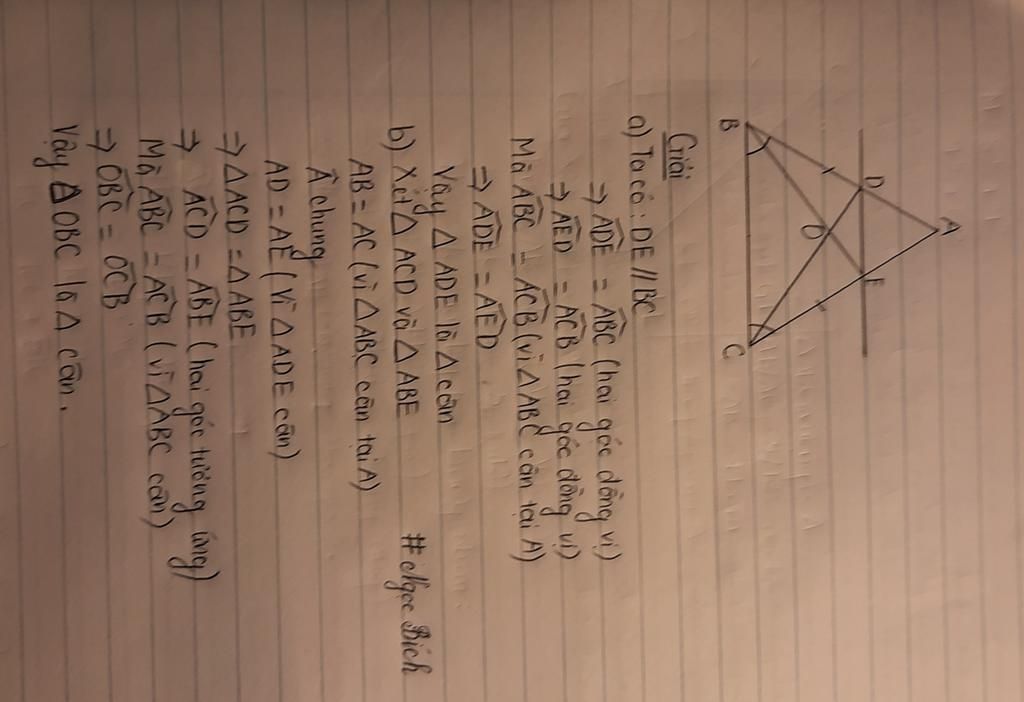 A
D
E
O
B
C
Giải
a) Ta có: DE // BC
=> ADÊ = ABĈ (hai góc đồng vị)
=> AED̂ = ACB̂ (hai góc đồng vị)
Mà ABĈ = ACB̂ (vì △ABC cân tại A)
=> ADÊ = AED̂
Vậy △ ADE là △ cân
b) Xét △ ACD và △ ABE
#Ngọc Bích
AB = AC (vì △ABC cân tại A)
Â chung
AD = AE (vì △ADE cân)
=> △ACD = △ABE
=> ACD̂ = ABÊ (hai góc tương ứng)
Mà ABĈ = ACB̂ (vì △ABC cân)
=> OBĈ = OCB̂
Vậy △OBC là △ cân.